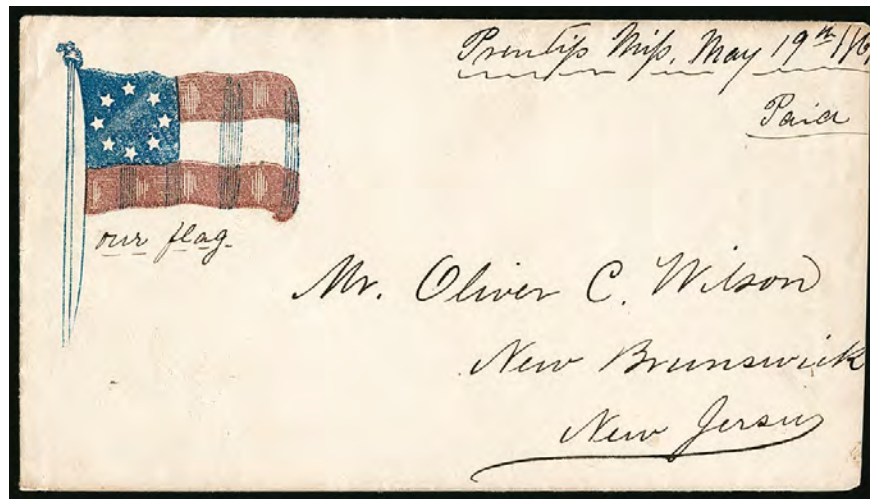 Prentiss Miss. May 19th /61
Paid
our flag.
Mr. Oliver C. Wilson
New Brunswick
New Jersey